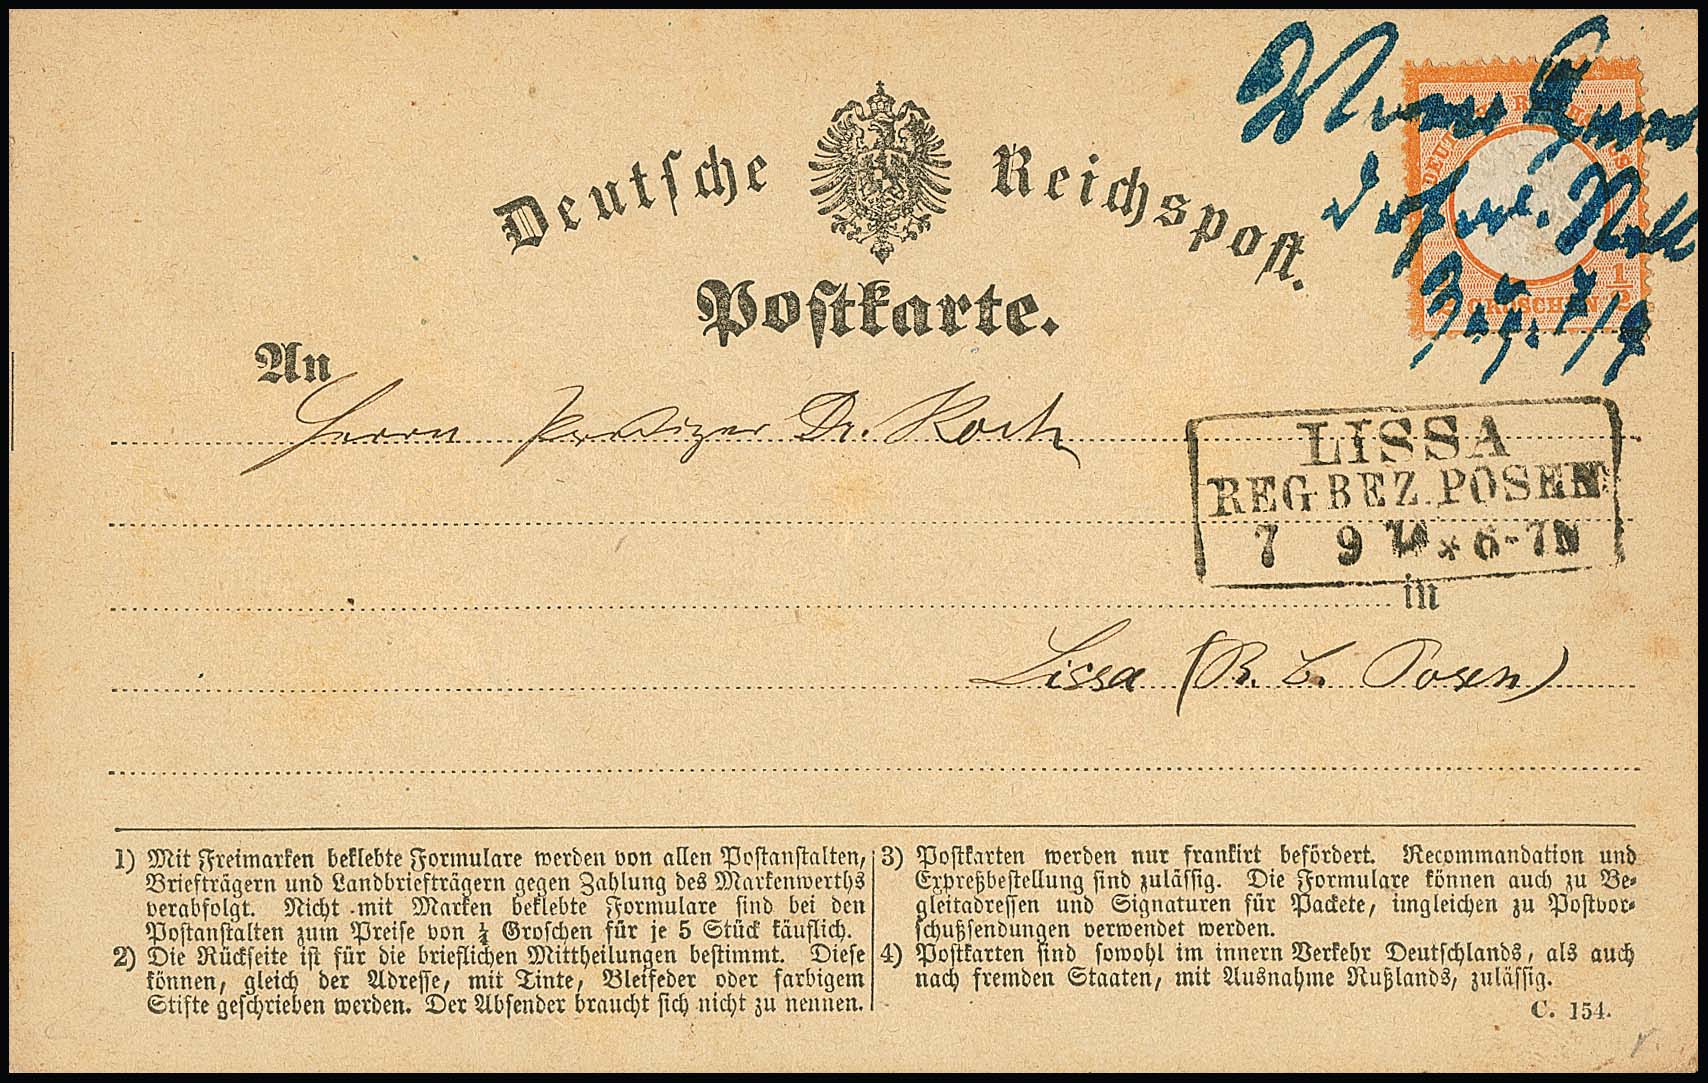 Deutsche Reichspost.
Postkarte.
DEUTSCHE REICHS POST
1/2
GROSCHEN
An
Herrn Prediger Dr. Koch
LISSA
REG BEZ. POSEN
7 9 * 6-7N
in
Lissa (R. B. Posen)
1) Mit Freimarken beklebte Formulare werden von allen Postanstalten,
Briefträgern und Landbriefträgern gegen Zahlung des Markenwerths
verabfolgt. Nicht mit Marken beklebte Formulare sind bei den
Postanstalten zum Preise von ¼ Groschen für je 5 Stück käuflich.
2) Die Rückseite ist für die brieflichen Mittheilungen bestimmt. Diese
können, gleich der Adresse, mit Tinte, Bleifeder oder farbigem
Stifte geschrieben werden. Der Absender braucht sich nicht zu nennen.
3) Postkarten werden nur frankirt befördert. Recommandation und
Expreßbestellung sind zulässig. Die Formulare können auch zu Be-
gleitadressen und Signaturen für Packete, imgleichen zu Postvor-
schußsendungen verwendet werden.
4) Postkarten sind sowohl im innern Verkehr Deutschlands, als auch
nach fremden Staaten, mit Ausnahme Rußlands, zulässig.
C. 154.